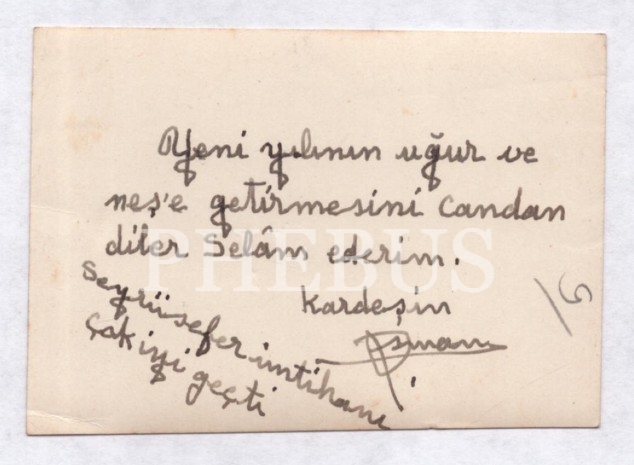 Yeni yılının uğur ve
neş'e getirmesini candan
diler Selâm ederim.
Kardeşin
Osman
Seyrüsefer imtihanı
Çok iyi geçti
PHEBUS